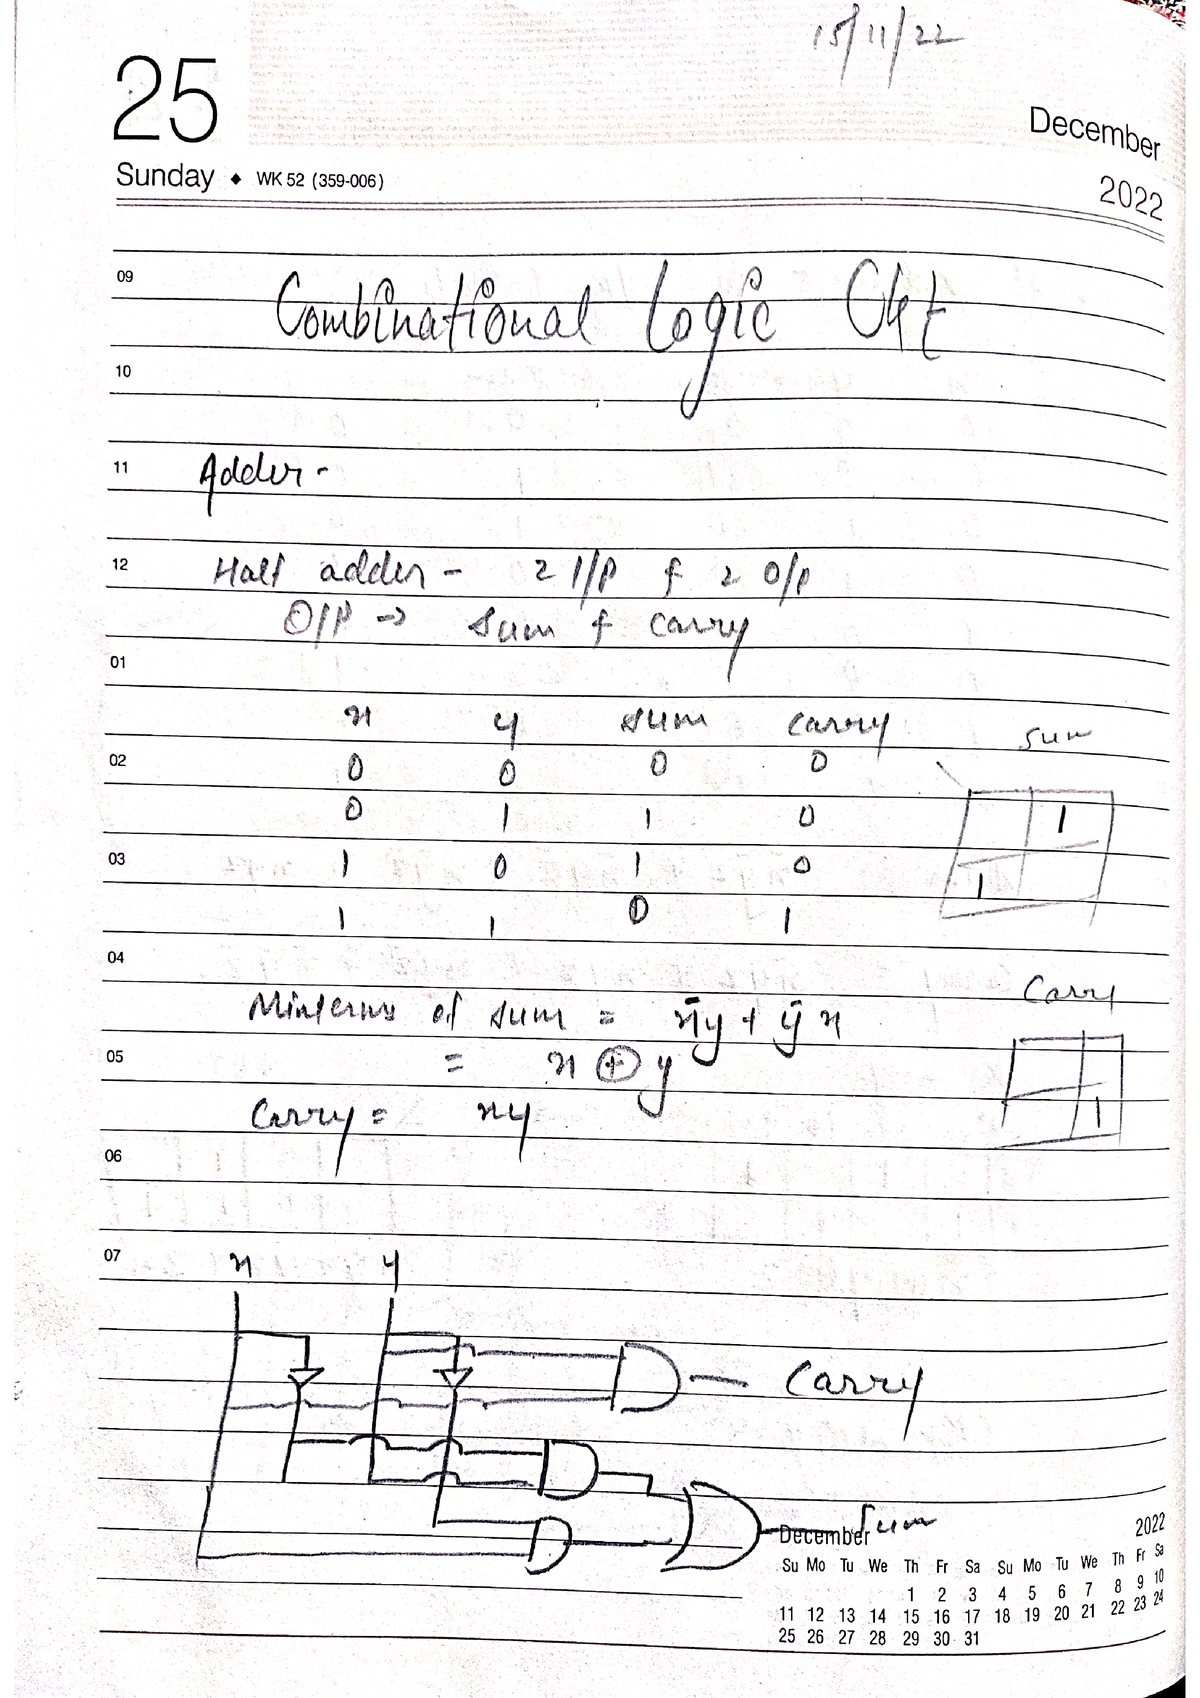 15/11/22
25
December
Sunday ♦ WK 52 (359-006)
2022
09
Combinational Logic Ckt
10
11
Adder -
12
Half adder - 2 I/P & 2 O/P
O/P → Sum & Carry
01
x y sum carry
Sum
02
0 0 0 0
0 1 1 0
1
03
1 0 1 0
1
1 1 0 1
04
Carry
Minterms of sum = x̄y + ȳx
05
= x ⊕ y
Carry = xy
1
06
07
x y
Carry
Sum
December 2022
Su Mo Tu We Th Fr Sa Su Mo Tu We Th Fr Sa
1 2 3 4 5 6 7 8 9 10
11 12 13 14 15 16 17 18 19 20 21 22 23 24
25 26 27 28 29 30 31